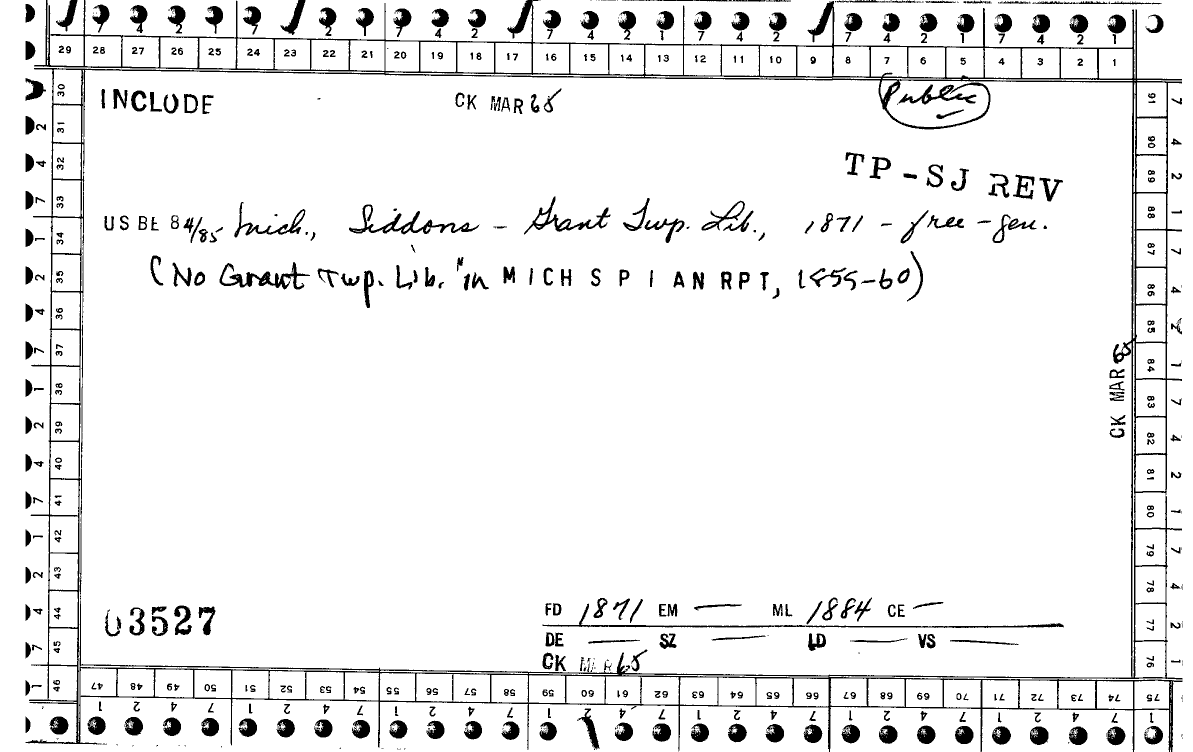 7 4 2 1 7 2 1 7 4 2 1 7 4 2 1 7 4 2 1 7 4 2 1 7 4 2 1
29 28 27 26 25 24 23 22 21 20 19 18 17 16 15 14 13 12 11 10 9 8 7 6 5 4 3 2 1
INCLUDE CK MAR 65 Public
TP-SJ REV
US BE 84/85 Mich., Siddons - Grant Twp. Lib., 1871 - free - gen.
(No Grant Twp. Lib. in MICH S P I AN RPT, 1859-60)
CK MAR 65
03527
FD 1871 EM — ML 1884 CE —
DE — SZ — LD — VS —
CK MAR 65
30 31 32 33 34 35 36 37 38 39 40 41 42 43 44 45 46
47 48 49 50 51 52 53 54 55 56 57 58 59 60 61 62 63 64 65 66 67 68 69 70 71 72 73 74 75
91 90 89 88 87 86 85 84 83 82 81 80 79 78 77 76